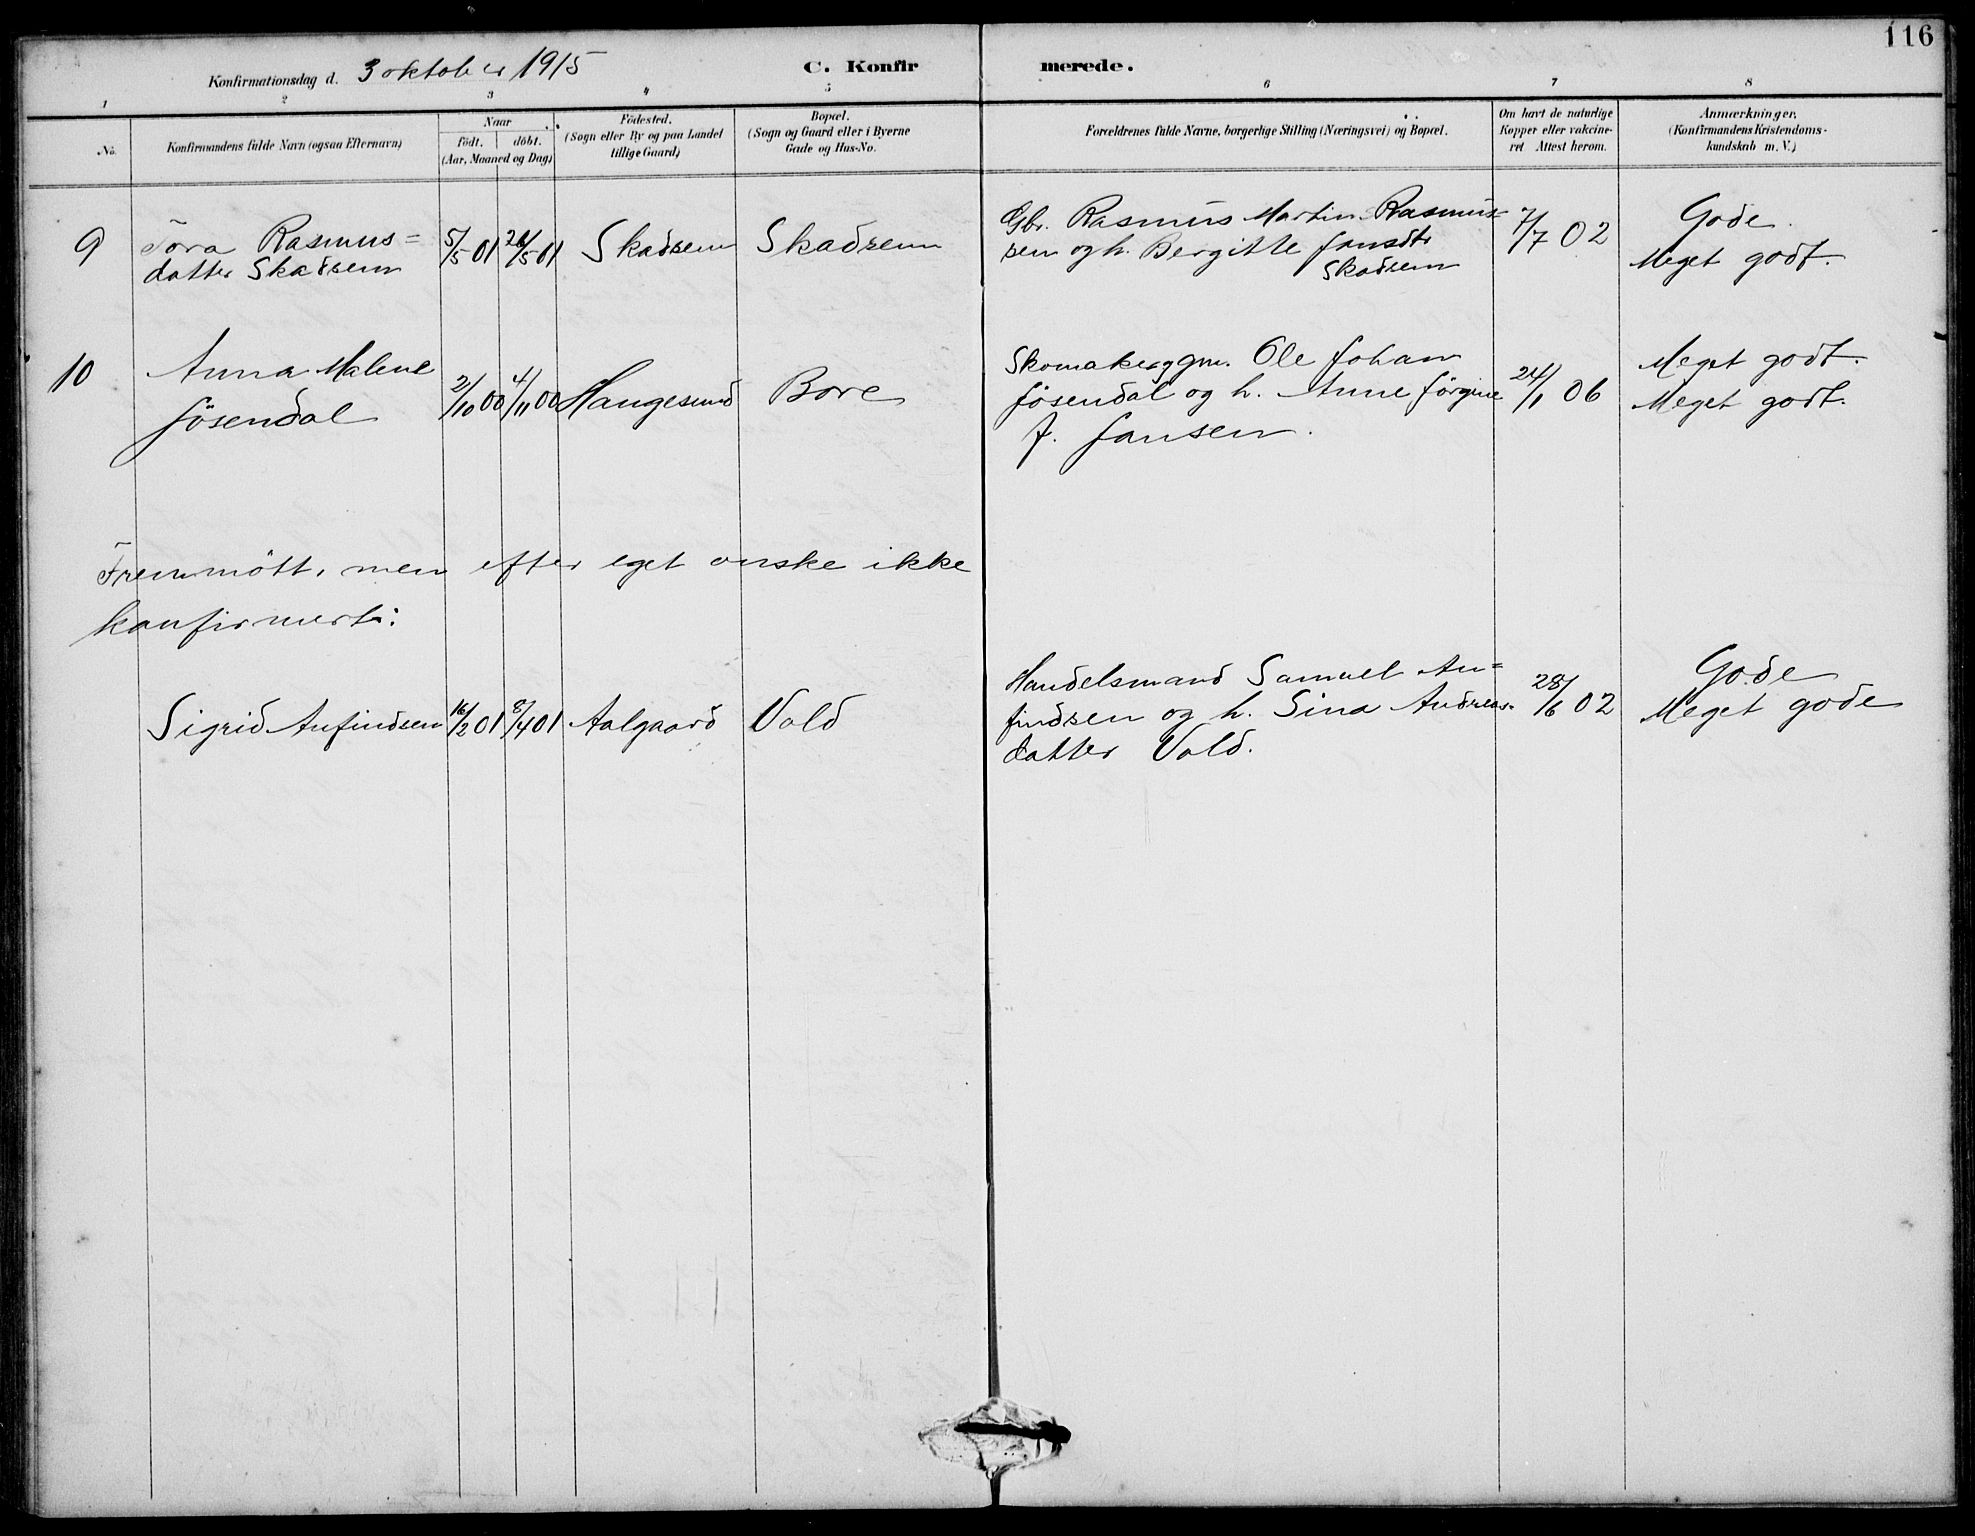 116
Konfirmationsdag d. 3 oktober 1915
C. Konfirmerede.
1 2 3 4 5 6 7 8
No.
Konfirmandens fulde Navn (ogsaa Efternavn)
Naar
födt. döbt.
(Aar, Maaned og Dag)
Födested.
(Sogn eller By og paa Landet
tillige Gaard)
Bopæl.
(Sogn og Gaard eller i Byerne
Gade og Hus-No.
Forældrenes fulde Navne, borgerlige Stilling (Næringsvei) og Bopæl.
Om havt de naturlige
Kopper eller vakcine-
ret Attest herom.
Anmærkninger.
(Konfirmandens Kristendoms-
kundskab m. V.)
9 Tora Rasmus=
datter Skadsem
5/5 01 26/5 01 Skadsem Skadsem
Gbr. Rasmus Martin Rasmus=
sen og h. Bergitte Jansdtr
Skadsem
7/7 02
Gode.
Meget godt.
10 Anna Malene
Jösendal
2/10 00 4/11 00 Haugesund Bore
Skomaker gm. Ole Johan
Jösendal og h. Anne Jörgine
J. Jansen.
24/1 06
Meget godt.
Meget godt.
Fremmött, men efter eget onske ikke
konfirmert:
Sigrid Anfindsen 16/2 01 8/4 01 Aalgaard Vold
Handelsmand Samuel An=
findsen og h. Sina Andreas-
datter Vold.
28/6 02
Gode
Meget gode